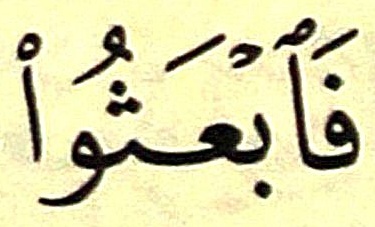 فَٱبْعَثُوا۟